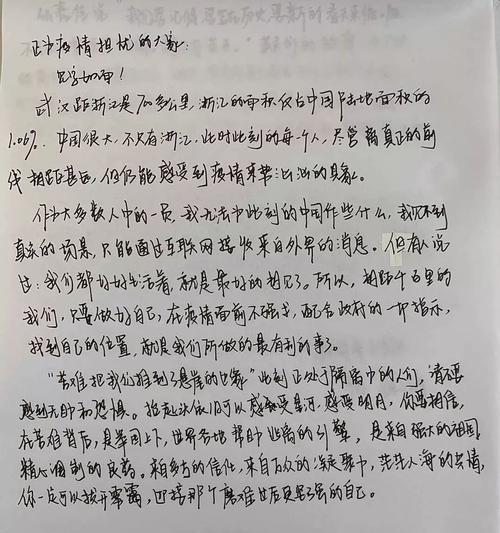 正为疫情担忧的大家：
见字如面！
武汉距浙江是700多公里，浙江的面积仅占中国陆地面积的
1.06%。中国很大，不只有浙江，此时此刻的每一个人，尽管离真正的前
线相距甚远，但仍能感受到疫情来势汹汹的具象。
作为大多数人中的一员，我无法为此刻的中国作些什么，我见不到
真实的场景，只能通过互联网接收来自外界的消息。但有人说
过：我们都好好生活着，就是最好的相见了。所以，相距千百里的
我们，只要做好自己，在疫情面前不强求，配合政府的一切指示，
找到自己的位置，就是我们所做的最有利的事了。
"苦难把我们推到了悬崖的边缘"此刻正处于隔离中的人们，请不要
感到无助和恐惧。抬起头依旧可以感受星河，感受明月，你要相信，
在苦难背后，是举国上下，世界各地帮助的引擎，是来自强大的祖国
精心调制的良药。来自多方的信任，来自万众的凝聚中，茫茫人海的共情，
你一定可以拨开雾霭，迎接那个磨难过后更坚强的自己。